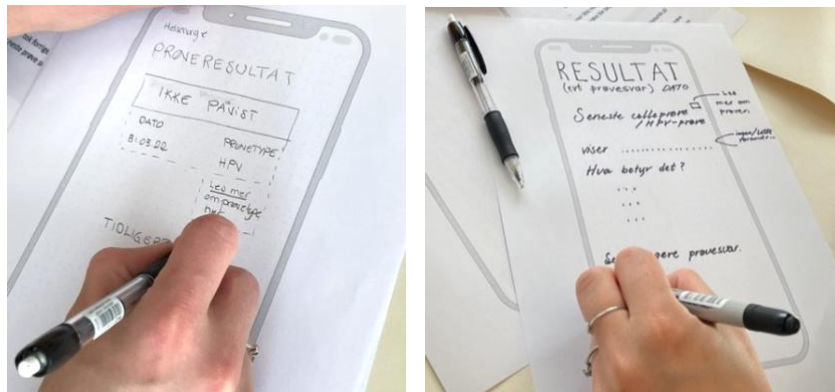 Helsenorge
PRØVERESULTAT
IKKE PÅVIST
DATO
31.03.22
PRØVETYPE
HPV
Les mer
om prøvetype
her
TIDLIGERE
RESULTAT
(evt prøvesvar) DATO
Seneste celleprøve
/HPV-prøve
Les
mer om
prøven
viser ..................
ingen/lette
Hva betyr det?
...
...
...
prøvesvar.